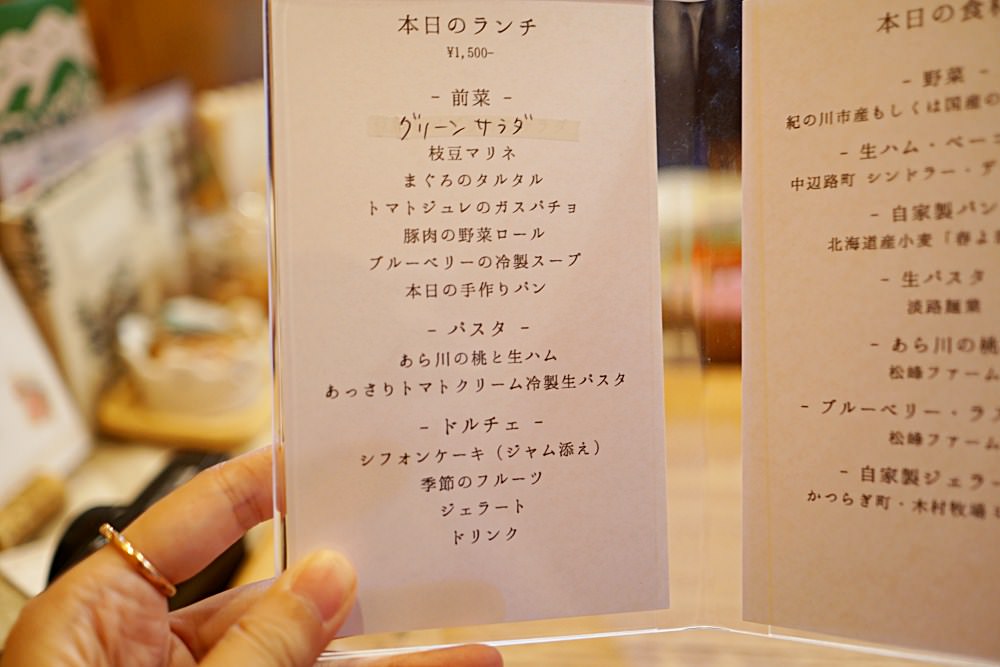 本日のランチ
¥1,500-
- 前菜 -
グリーンサラダ
枝豆マリネ
まぐろのタルタル
トマトジュレのガスパチョ
豚肉の野菜ロール
ブルーベリーの冷製スープ
本日の手作りパン
- パスタ -
あら川の桃と生ハム
あっさりトマトクリーム冷製生パスタ
- ドルチェ -
シフォンケーキ（ジャム添え）
季節のフルーツ
ジェラート
ドリンク
本日の食
- 野菜 -
紀の川市産もしくは国産の
- 生ハム・ベーコ
中辺路町 シンドラー・
- 自家製パン
北海道産小麦「春よ
- 生パスタ
淡路麺業
- あら川の桃
松峰ファーム
- ブルーベリー・ラ
松峰ファーム
- 自家製ジェラー
かつらぎ町・木村牧場